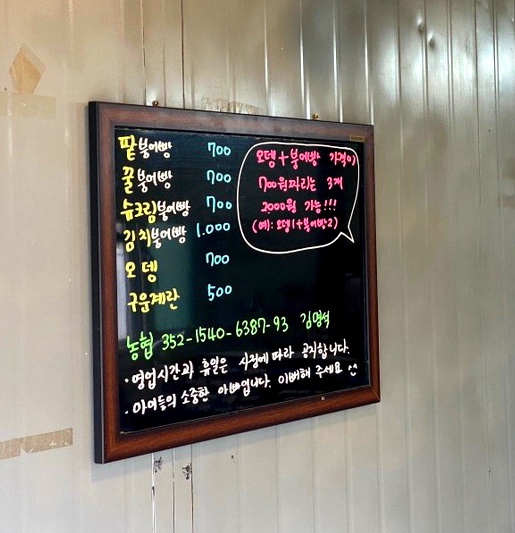 팥붕어빵 700
꿀붕어빵 700
슈크림붕어빵 700
김치붕어빵 1.000
오뎅 700
구운계란 500
오뎅+붕어빵 가격이
700원짜리는 3개
2000원 가능!!!
(예: 오뎅1+붕어빵2)
농협 352-1540-6387-93 김명석
·영업시간과 휴일은 사정에 따라 공지합니다.
·아이들의 소중한 아빠입니다. 이뻐해 주세요